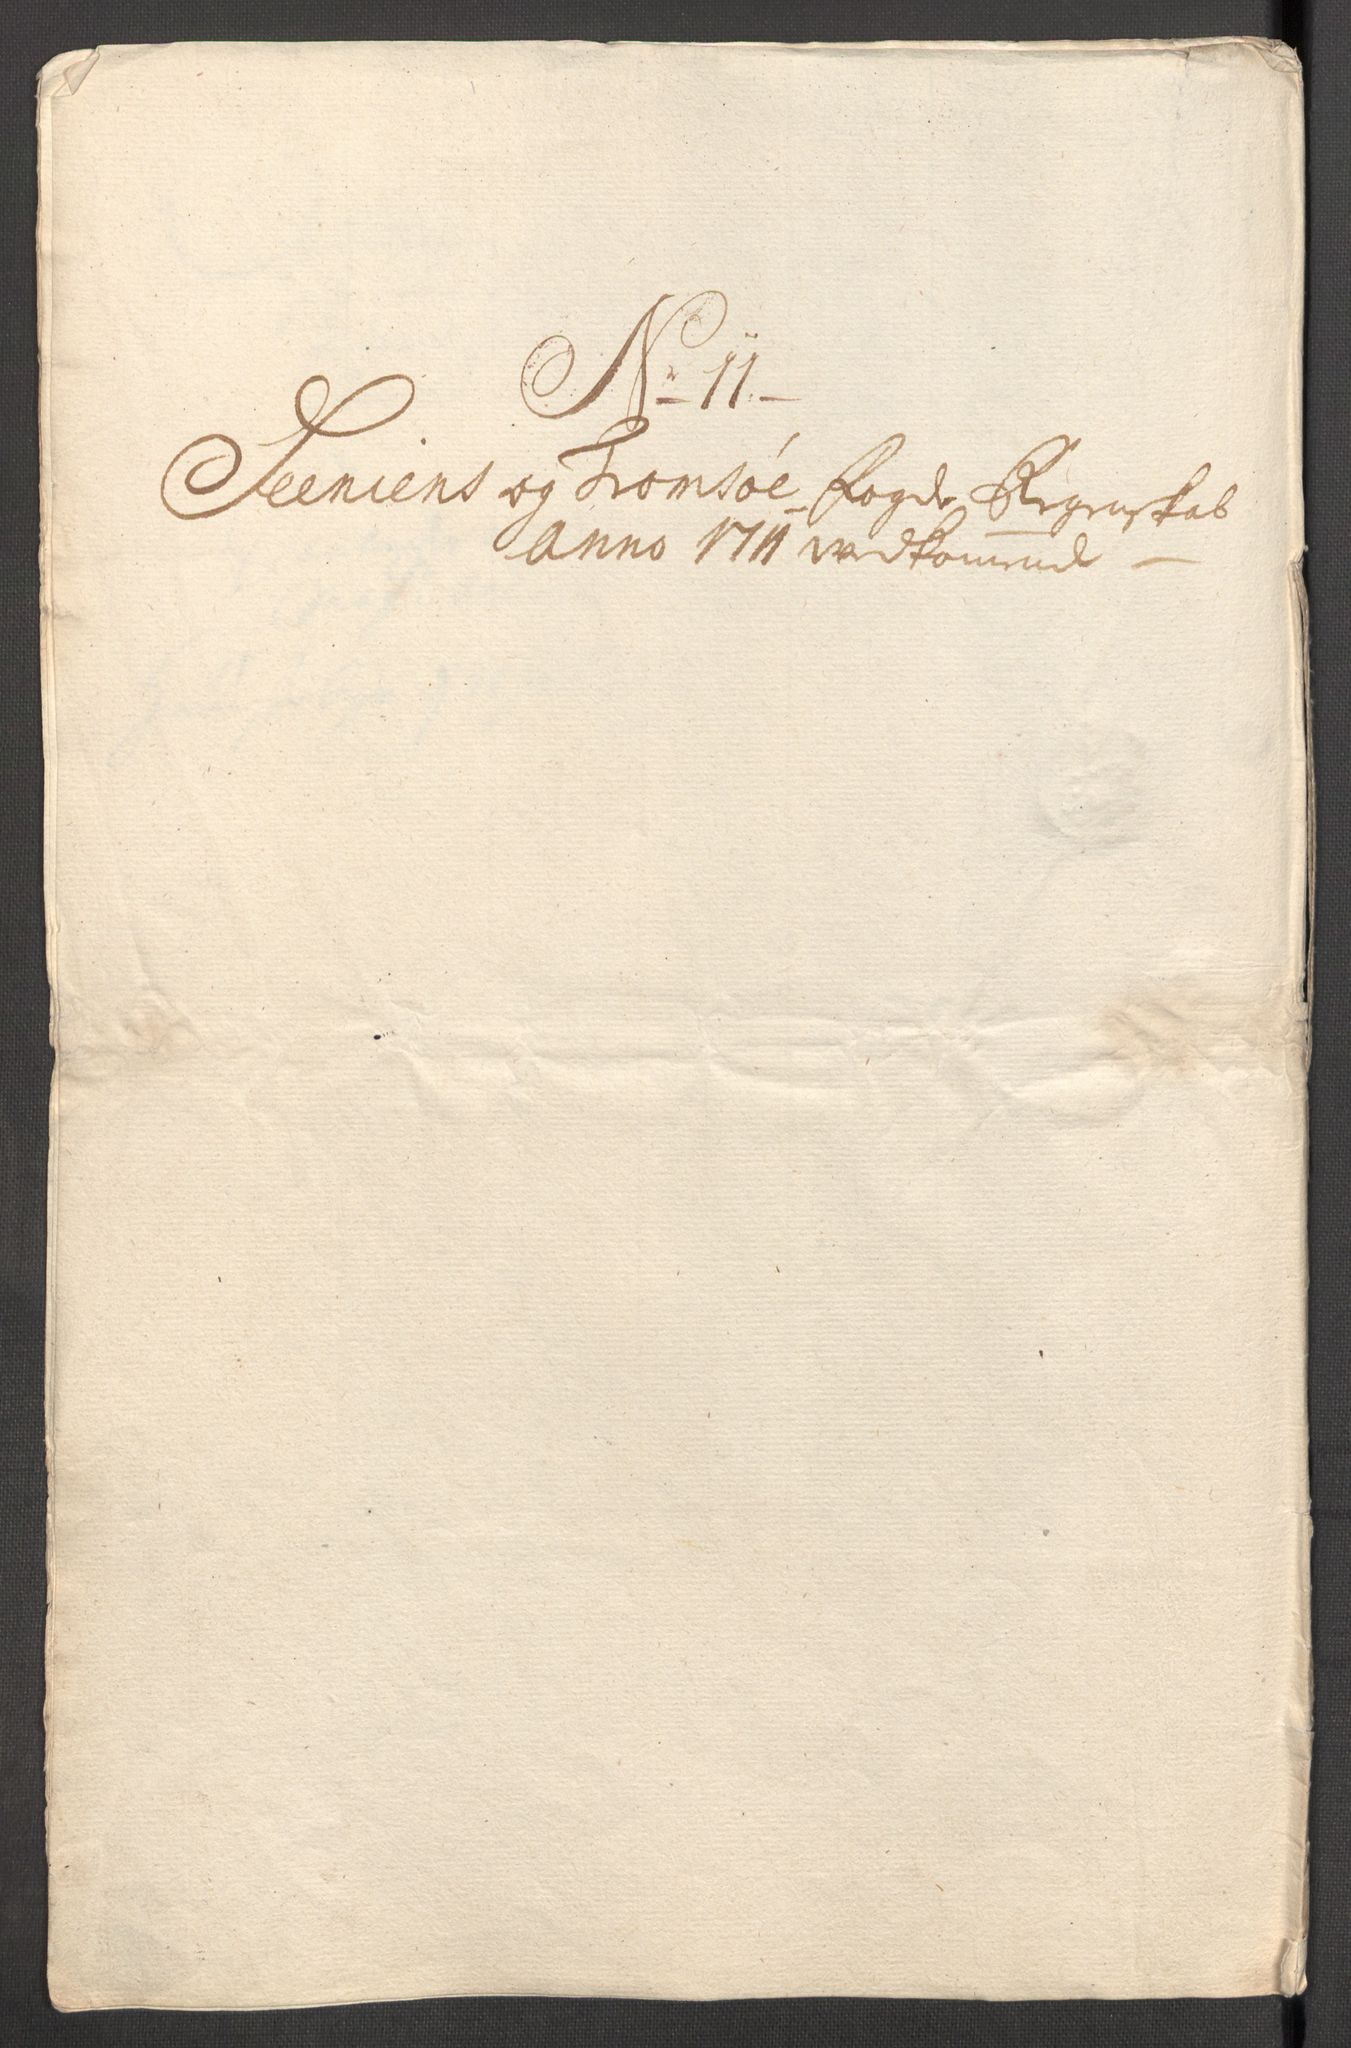 No 11
Seeniens og Tromsøe fogde Regenskab
Anno 1711 vedkommende